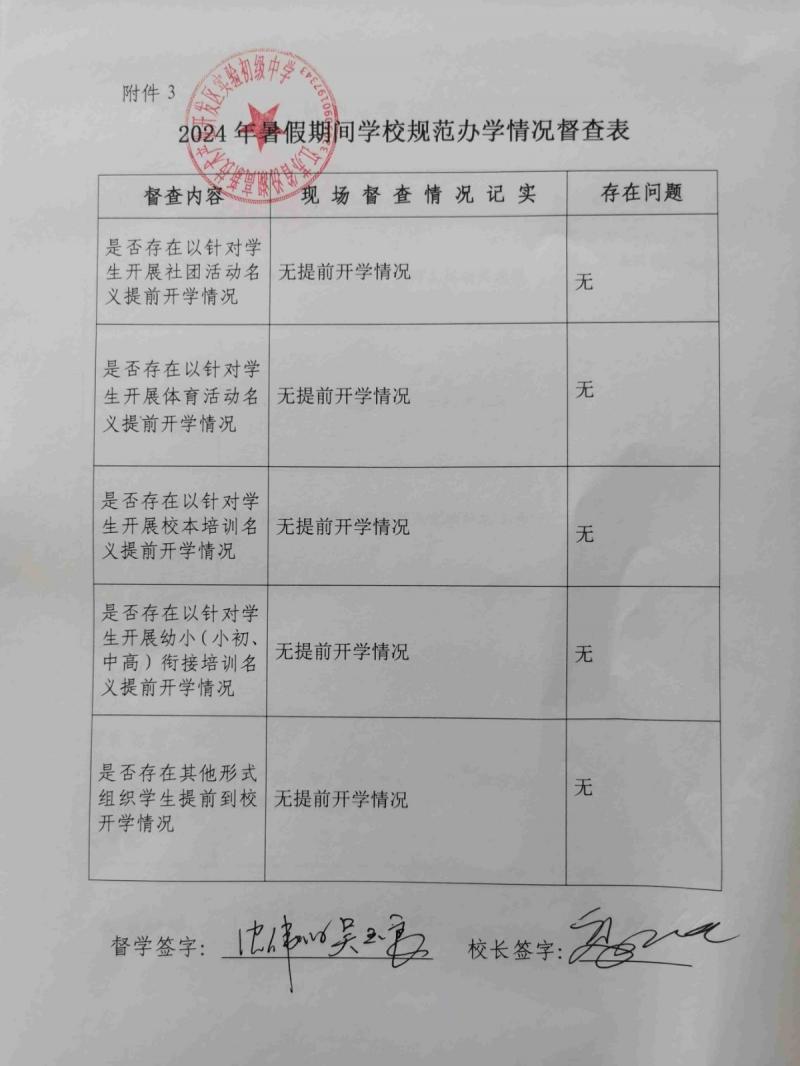 附件 3
2024 年暑假期间学校规范办学情况督查表
督查内容 现场督查情况记实 存在问题
是否存在以针对学
生开展社团活动名
义提前开学情况
无提前开学情况
无
是否存在以针对学
生开展体育活动名
义提前开学情况
无提前开学情况
无
是否存在以针对学
生开展校本培训名
义提前开学情况
无提前开学情况
无
是否存在以针对学
生开展幼小（小初、
中高）衔接培训名
义提前开学情况
无提前开学情况
无
是否存在其他形式
组织学生提前到校
开学情况
无提前开学情况
无
督学签字：
校长签字：